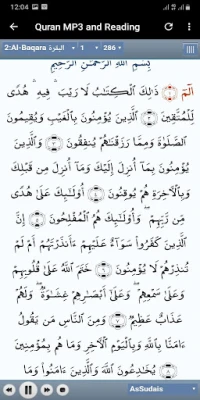 12:04
84%
Quran MP3 and Reading
2:Al-Baqara البقرة 1 286
بِسْمِ اللَّهِ الرَّحْمَٰنِ الرَّحِيمِ
الٓمٓ ۝ ذَٰلِكَ الْكِتَٰبُ لَا رَيْبَ ۛ فِيهِ ۛ هُدًى
لِّلْمُتَّقِينَ ۝ الَّذِينَ يُؤْمِنُونَ بِالْغَيْبِ وَيُقِيمُونَ
الصَّلَوٰةَ وَمِمَّا رَزَقْنَٰهُمْ يُنفِقُونَ ۝ وَالَّذِينَ
يُؤْمِنُونَ بِمَآ أُنزِلَ إِلَيْكَ وَمَآ أُنزِلَ مِن قَبْلِكَ
وَبِالْءَاخِرَةِ هُمْ يُوقِنُونَ ۝ أُولَٰٓئِكَ عَلَىٰ هُدًى
مِّن رَّبِّهِمْ ۖ وَأُولَٰٓئِكَ هُمُ الْمُفْلِحُونَ ۝ إِنَّ
الَّذِينَ كَفَرُوا سَوَآءٌ عَلَيْهِمْ ءَأَنذَرْتَهُمْ أَمْ لَمْ
تُنذِرْهُمْ لَا يُؤْمِنُونَ ۝ خَتَمَ اللَّهُ عَلَىٰ قُلُوبِهِمْ
وَعَلَىٰ سَمْعِهِمْ ۖ وَعَلَىٰٓ أَبْصَٰرِهِمْ غِشَٰوَةٌ ۖ وَلَهُمْ
عَذَابٌ عَظِيمٌ ۝ وَمِنَ النَّاسِ مَن يَقُولُ
ءَامَنَّا بِاللَّهِ وَبِالْيَوْمِ الْءَاخِرِ وَمَا هُم بِمُؤْمِنِينَ
۝ يُخَٰدِعُونَ اللَّهَ وَالَّذِينَ ءَامَنُوا وَمَا
AsSudais